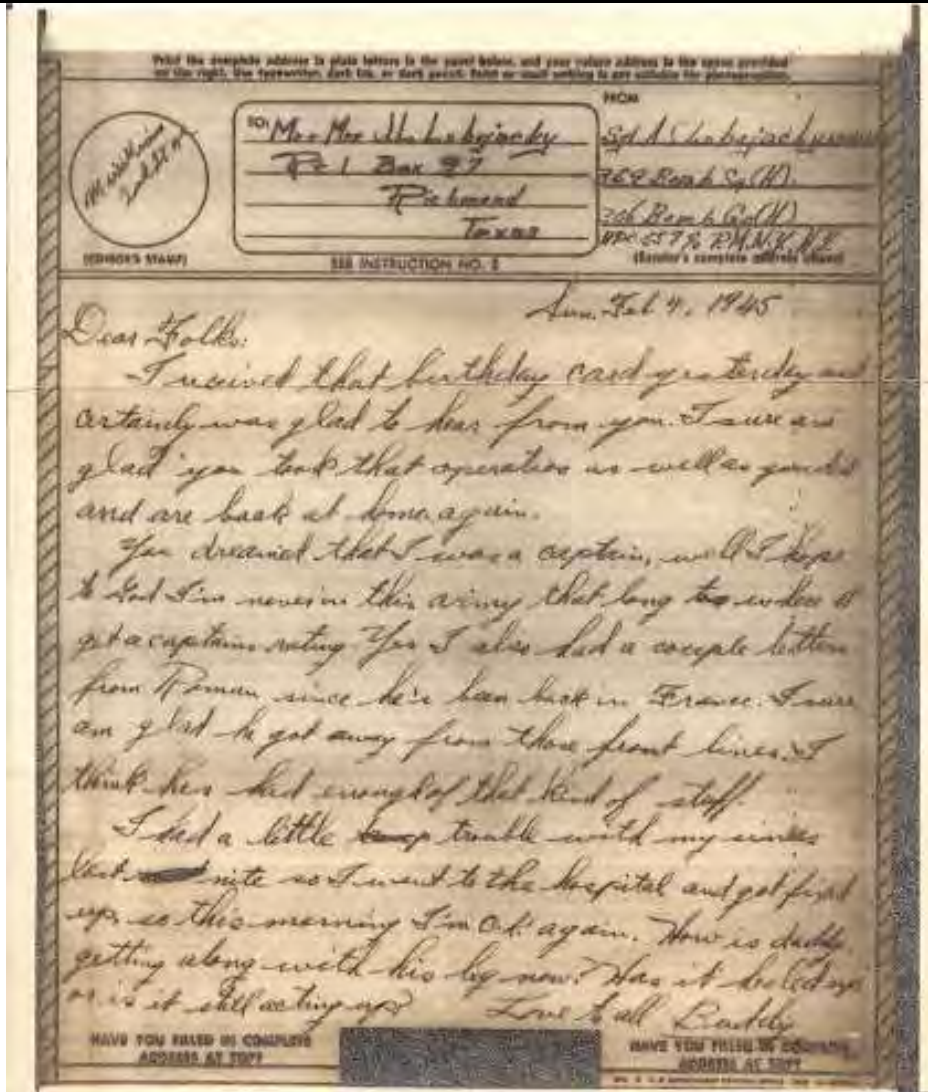 Print the complete address in plain letters in the panel below, and your return address in the space provided
on the right. Use typewriter, dark ink, or dark pencil. Faint or small writing is not suitable for photographing.
FROM
TO:
Rt 1 Box 97
Richmond
Texas
Sgt A
369 Bomb Sq (H)
306 Bomb Gp (H)
(CENSOR'S STAMP)
SEE INSTRUCTION NO. 2
(Sender's complete address above)
Sun. Feb 4, 1945
Dear Folks:
I received that birthday card yesterday and
certainly was glad to hear from you. I sure am
glad you took that operation as well as you did
and are back at home again.
You dreamed that I was a captain, well I hope
to God I'm never in this army that long to where I
get a captains rating. Yes I also had a couple letters
from Roman since he's been back in France. I sure
am glad he got away from those front lines. I
think hes had enough of that kind of stuff.
I had a little trouble with my sinus
last nite so I went to the hospital and got fixed
up so this morning I'm O.K. again. How is daddy
getting along with his leg now? Has it healed up
or is it still acting up? Love to all Buddy
HAVE YOU FILLED IN COMPLETE
ADDRESS AT TOP?
HAVE YOU FILLED IN COMPLETE
ADDRESS AT TOP?